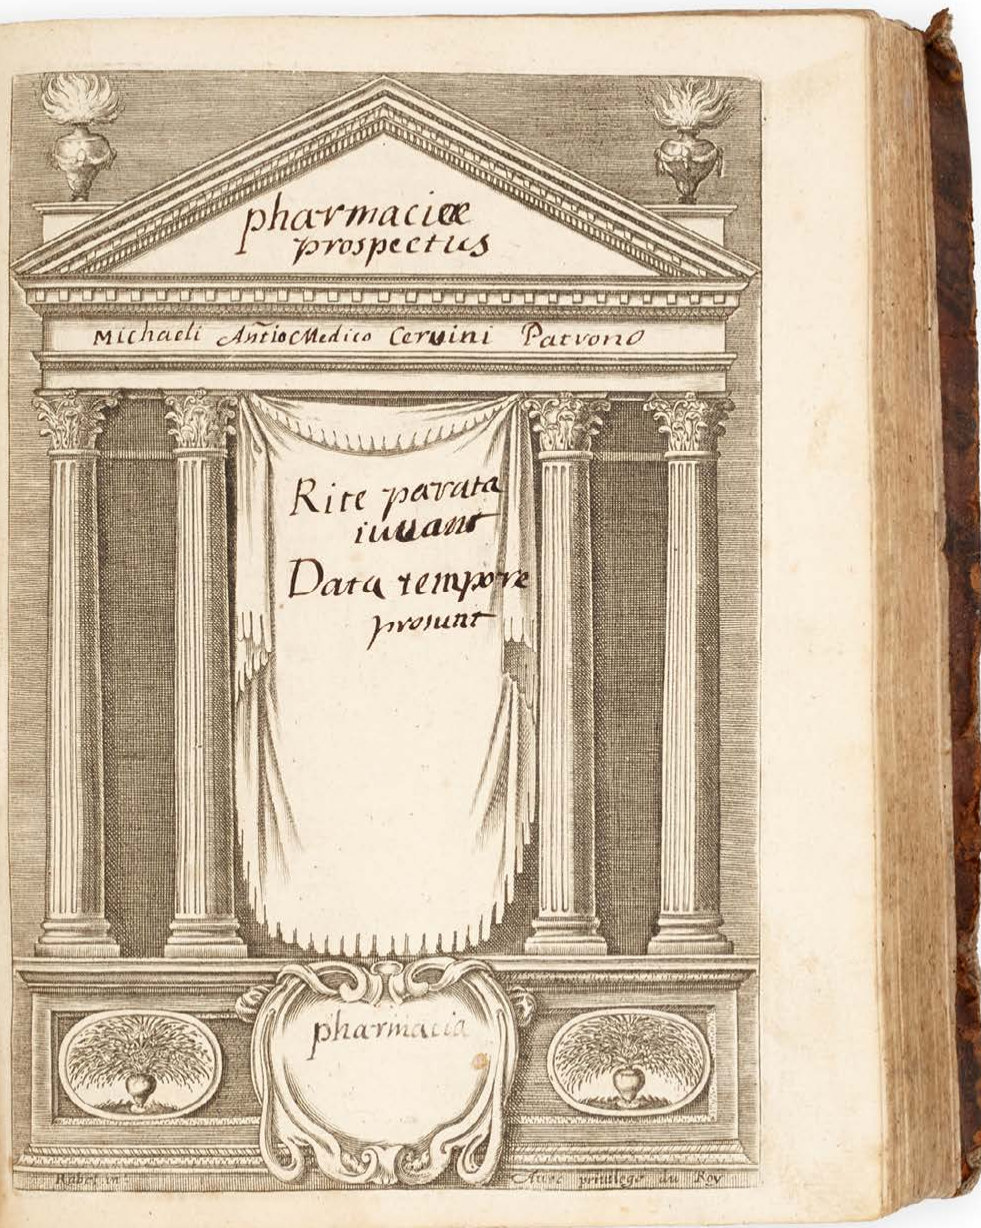 pharmaciæ
prospectus
Michaeli Añtio Medico Cervini Patrono
Rite parata
iuuant
Data tempore
prosunt
pharmacia
Rabel in:
Auec priuilege du Roy